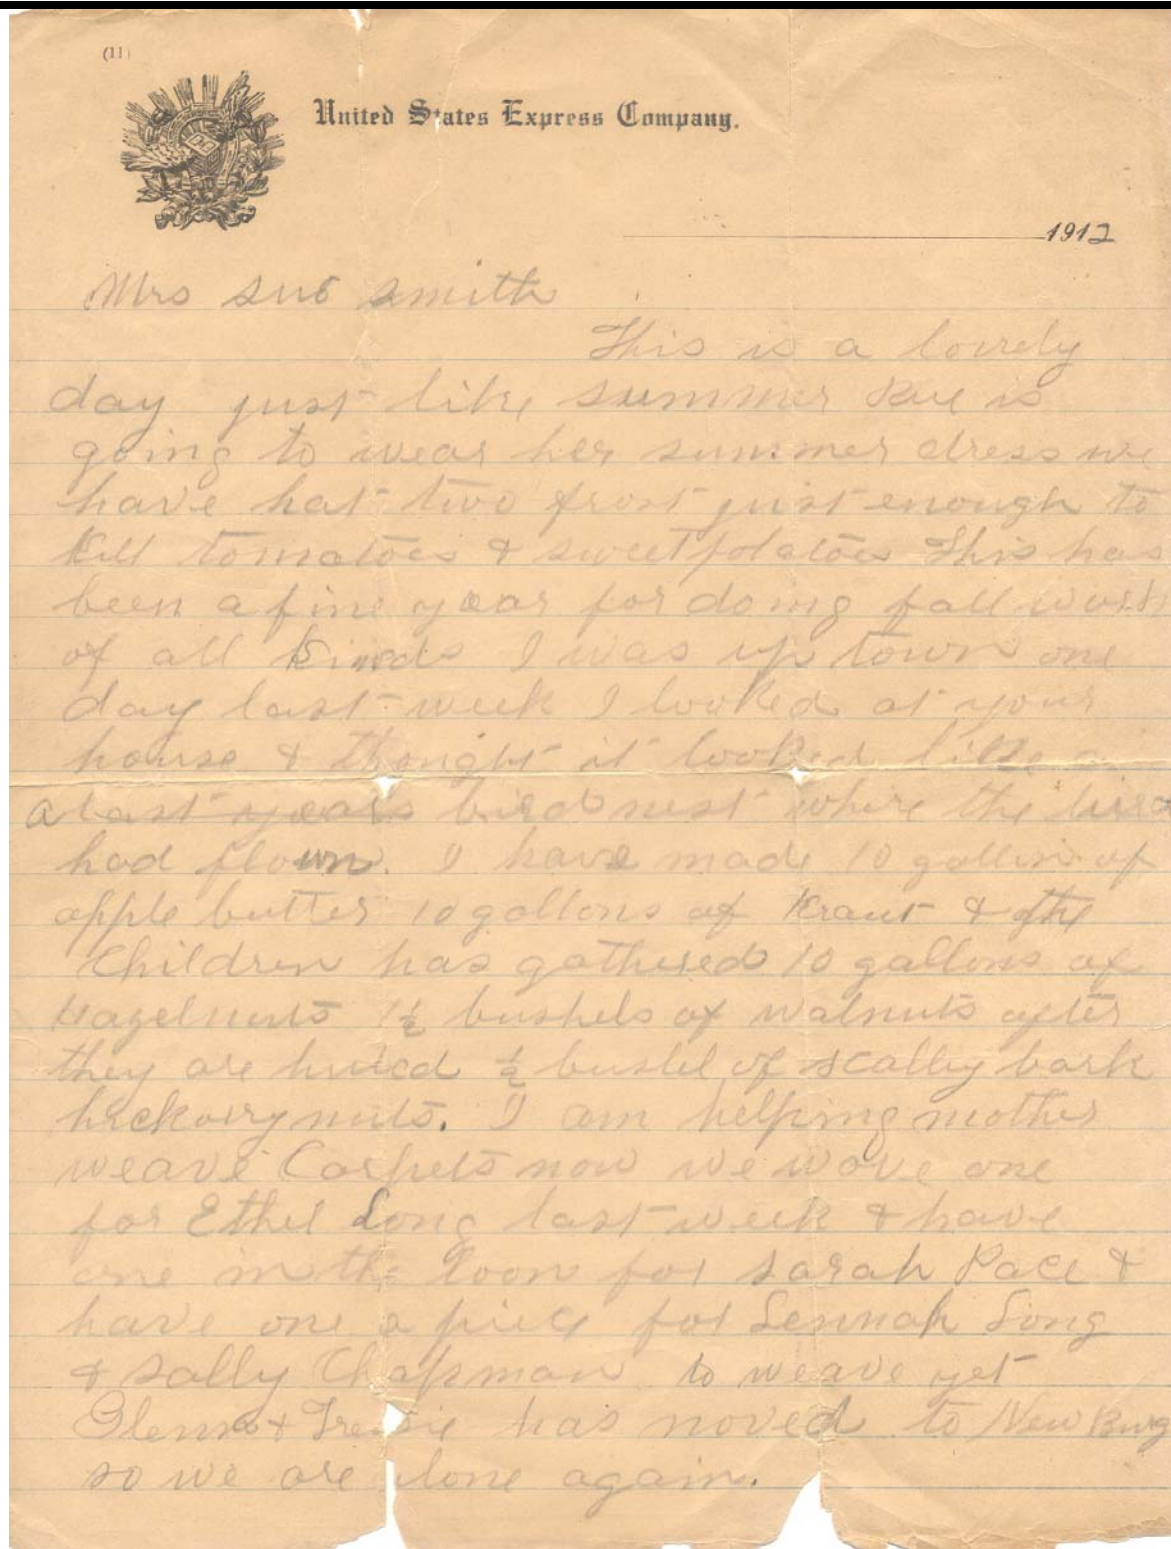 (11)
United States Express Company.
1912
Mrs Sue Smith
This is a lovely
day just like summer is
going to wear her summer dress we
have hat two frost just enough to
kill tomatoes & sweetpotatoes This has
been a fine year for doing fall work
of all kinds I was up town one
day last week I looked at your
house & thought it looked like a
a last years birds nest where the bird
had flown. I have made 10 gallons of
apple butter 10 gallons of Kraut & the
Children has gathered 10 gallons of
hazelnuts 1½ bushels of walnuts after
they are huled ½ bushel of scalley bark
hickory nuts. I am helping mother
weave Carpets now we wove one
for Ethel Long last week & have
one in the loom for Sarah Pace &
have one a piece for Long
& Sally Chapman to weave yet
Glenn & has moved to New Burg
so we are alone again.